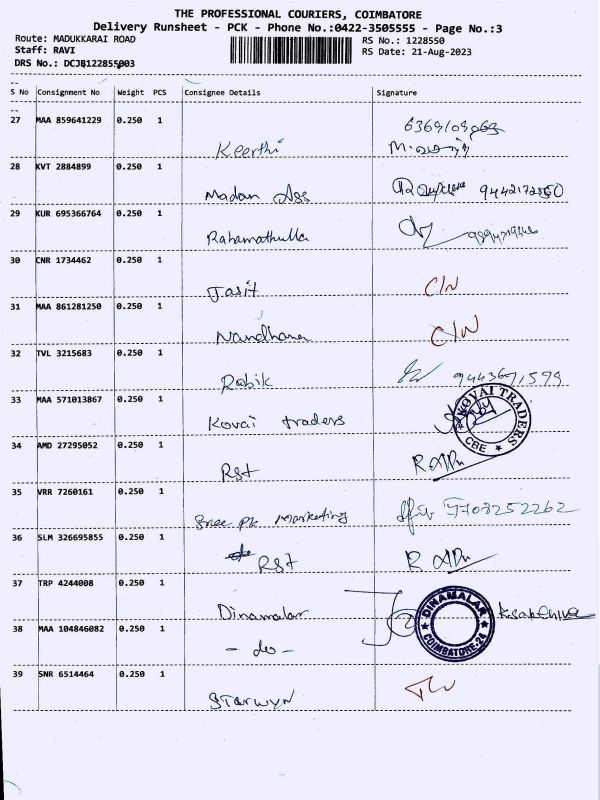 THE PROFESSIONAL COURIERS, COIMBATORE
Delivery Runsheet - PCK - Phone No.:0422-3505555 - Page No.:3
Route: MADUKKARAI ROAD RS No.: 1228550
Staff: RAVI RS Date: 21-Aug-2023
DRS No.: DCJB122855003
S No Consignment No Weight PCS Consignee Details Signature
27 MAA 859641229 0.250 1
Keerthi
28 KVT 2884899 0.250 1
Madan Ass
29 KUR 695366764 0.250 1
Rahamathulla
30 CNR 1734462 0.250 1
Jasit C/N
31 MAA 861281250 0.250 1
Nandhana C/N
32 TVL 3215683 0.250 1
Rabik 9443691599
33 MAA 571013867 0.250 1
Kovai traders KOVAI TRADERS CBE
34 AMD 27295052 0.250 1
Rst
35 VRR 7260161 0.250 1
Sree PK Marketing 7708252262
36 SLM 326695855 0.250 1
Rst
37 TRP 4244008 0.250 1
Dinamalar DINAMALAR COIMBATORE-24
38 MAA 104846082 0.250 1
- do -
39 SNR 6514464 0.250 1
Starwyn